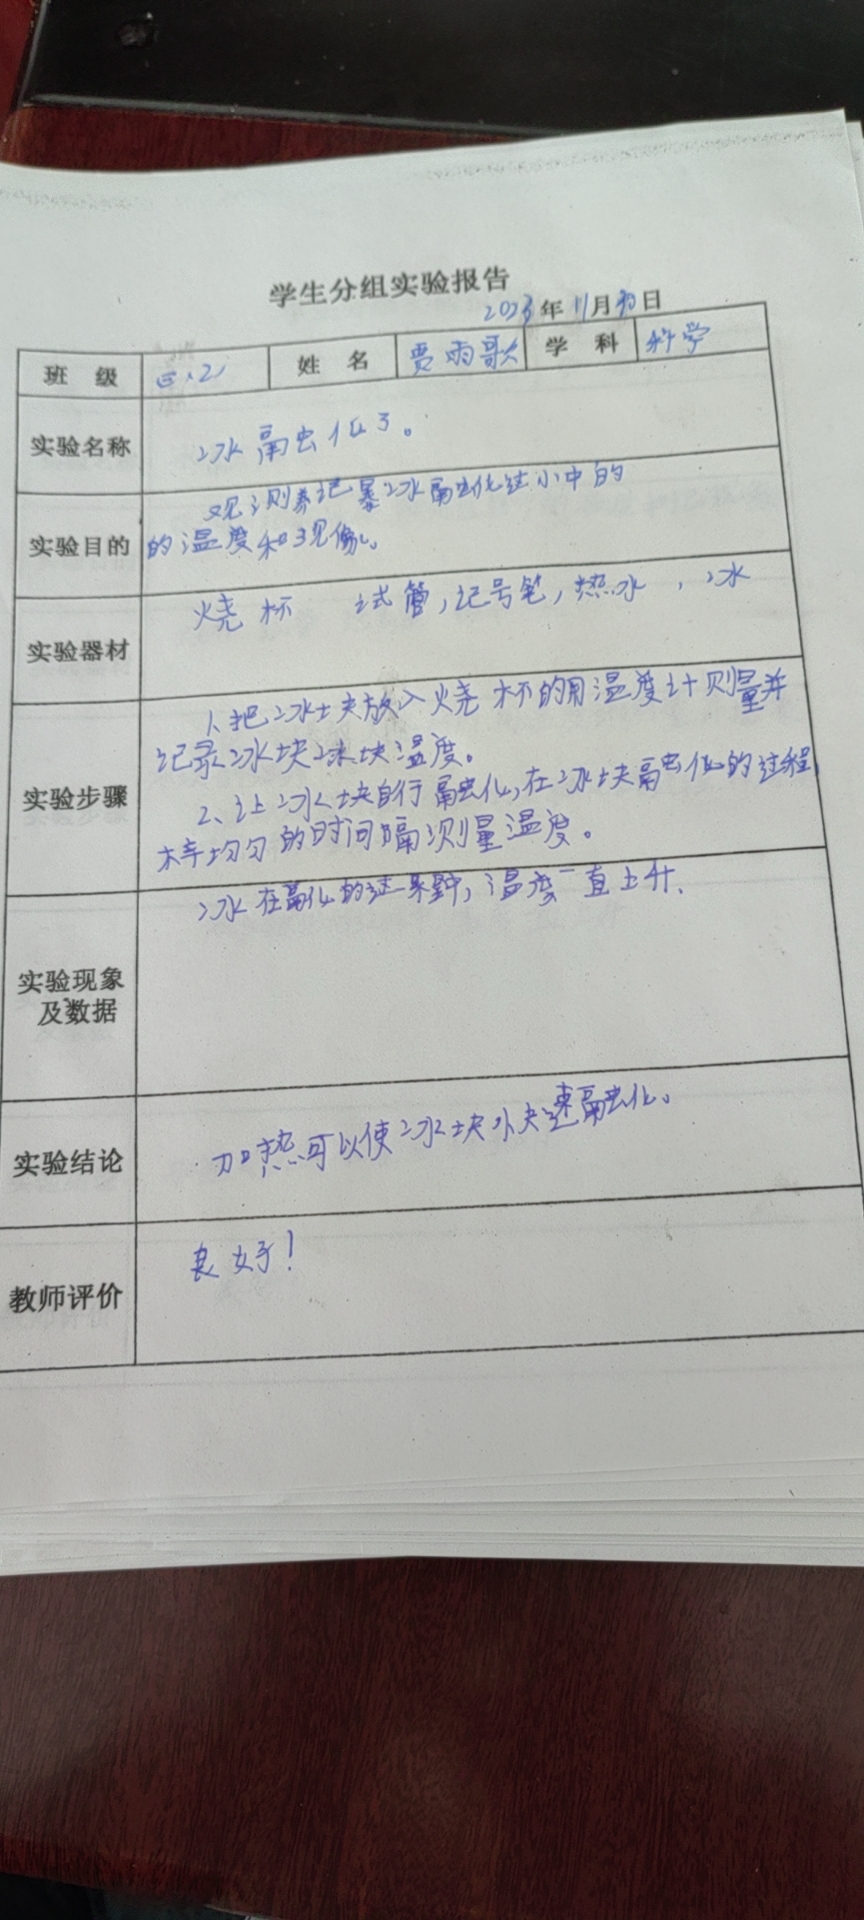 学生分组实验报告
2023年11月30日
班 级 三、2 姓 名 贾雨歌 学 科 科学
实验名称 冰融化了。
实验目的 观测并记录冰融化过中的
的温度和现像。
实验器材 烧杯 试管，记号笔，热水，冰
实验步骤 1、把冰块放入烧杯的用温度计则量并
记录冰块冰块温度。
2、让冰块自行融化，在冰块融化的过程，
均匀的时间隔测量温度。
实验现象
及数据 冰在融化的过程，温度一直上升．
实验结论 加热可以使冰块快速融化。
教师评价 良好！